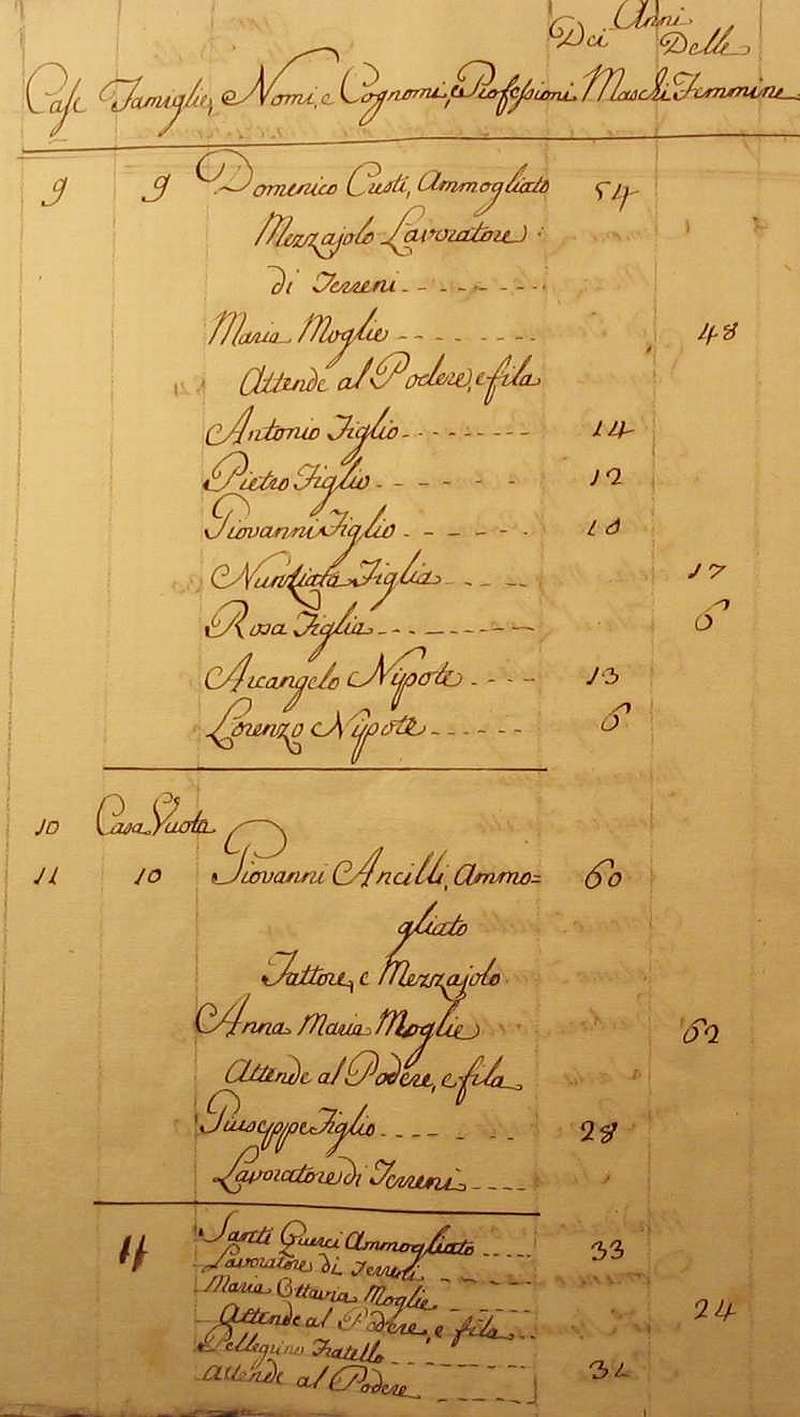 Anni
Dei Delle
Case Famiglie, e Nomi, e Cognomi, e Professioni. Maschi Femmine
9 9 Domenico Custi, Ammogliato 54
Mezzajolo Lavoratore
di Terreni
Maria Moglie 48
Attende al Podere, e fila
Antonio Figlio 14
Pietro Figlio 12
Giovanni Figlio 10
Nunziata Figlia 17
Rosa Figlia 6
Arcangelo Nipote 13
Lorenzo Nipote 6
10 Casa Vuota
11 10 Giovanni Ancilli, Ammo=60
gliato
Fattore, e Mezzajolo
Anna Maria Moglie 62
Attende al Podere, e fila
Giuseppe Figlio 28
Lavoratore di Terreni
11 Santi Ammogliato 33
Lavoratore di Terreni
Maria Ottavia Moglie
Attende al Podere, e fila 24
Pellegrino Fratello
Attende al Podere